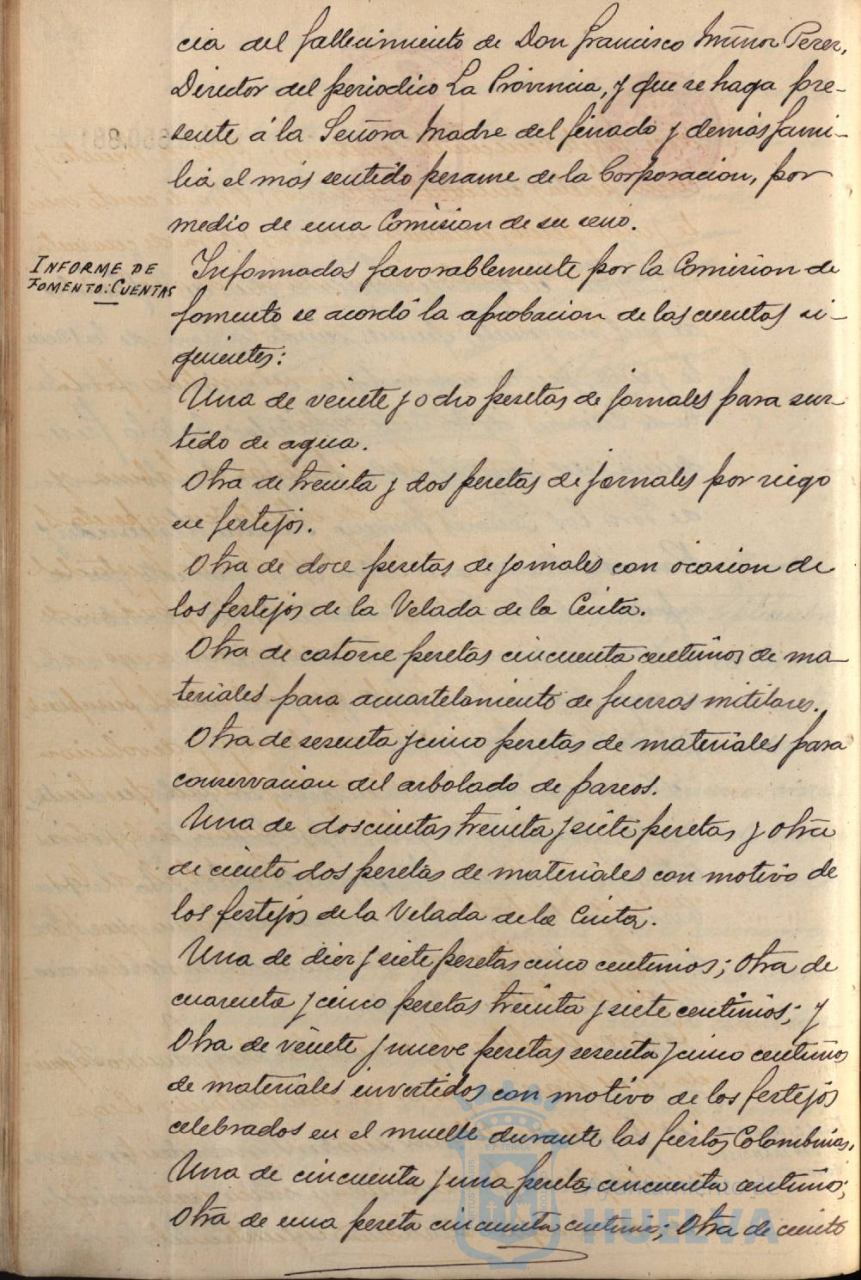 cia del fallecimiento de Don Francisco Muñoz Perez,
Director del periodico La Provincia, y que se haga pre-
sente á la Señora Madre del finado y demás fami-
lia el más sentido pesame de la Corporacion, por
medio de una Comision de su seno.
INFORME DE
FOMENTO: CUENTAS
Informados favorablemente por la Comision de
fomento se acordó la aprobacion de las cuentas si-
guientes:
Una de veinte y ocho pesetas de jornales para sur-
tido de agua.
Otra de treinta y dos pesetas de jornales por riego
en festejos.
Otra de doce pesetas de jornales con ocasion de
los festejos de la Velada de la Cinta.
Otra de catorce pesetas cincuenta centimos de ma-
teriales para acuartelamiento de fuerzas militares.
Otra de sesenta y cinco pesetas de materiales para
conservacion del arbolado de paseos.
Una de doscientas treinta y siete pesetas y otra
de ciento dos pesetas de materiales con motivo de
los festejos de la Velada de la Cinta.
Una de diez y siete pesetas cinco centimos; Otra de
cuarenta y cinco pesetas treinta y siete centimos; y
Otra de veinte y nueve pesetas sesenta y cinco centimos
de materiales invertidos con motivo de los festejos
celebrados en el muelle durante las fiestas Colombinas.
Una de cincuenta y una pesetas cincuenta centimos;
Otra de una peseta cincuenta centimos; Otra de ciento
HUELVA